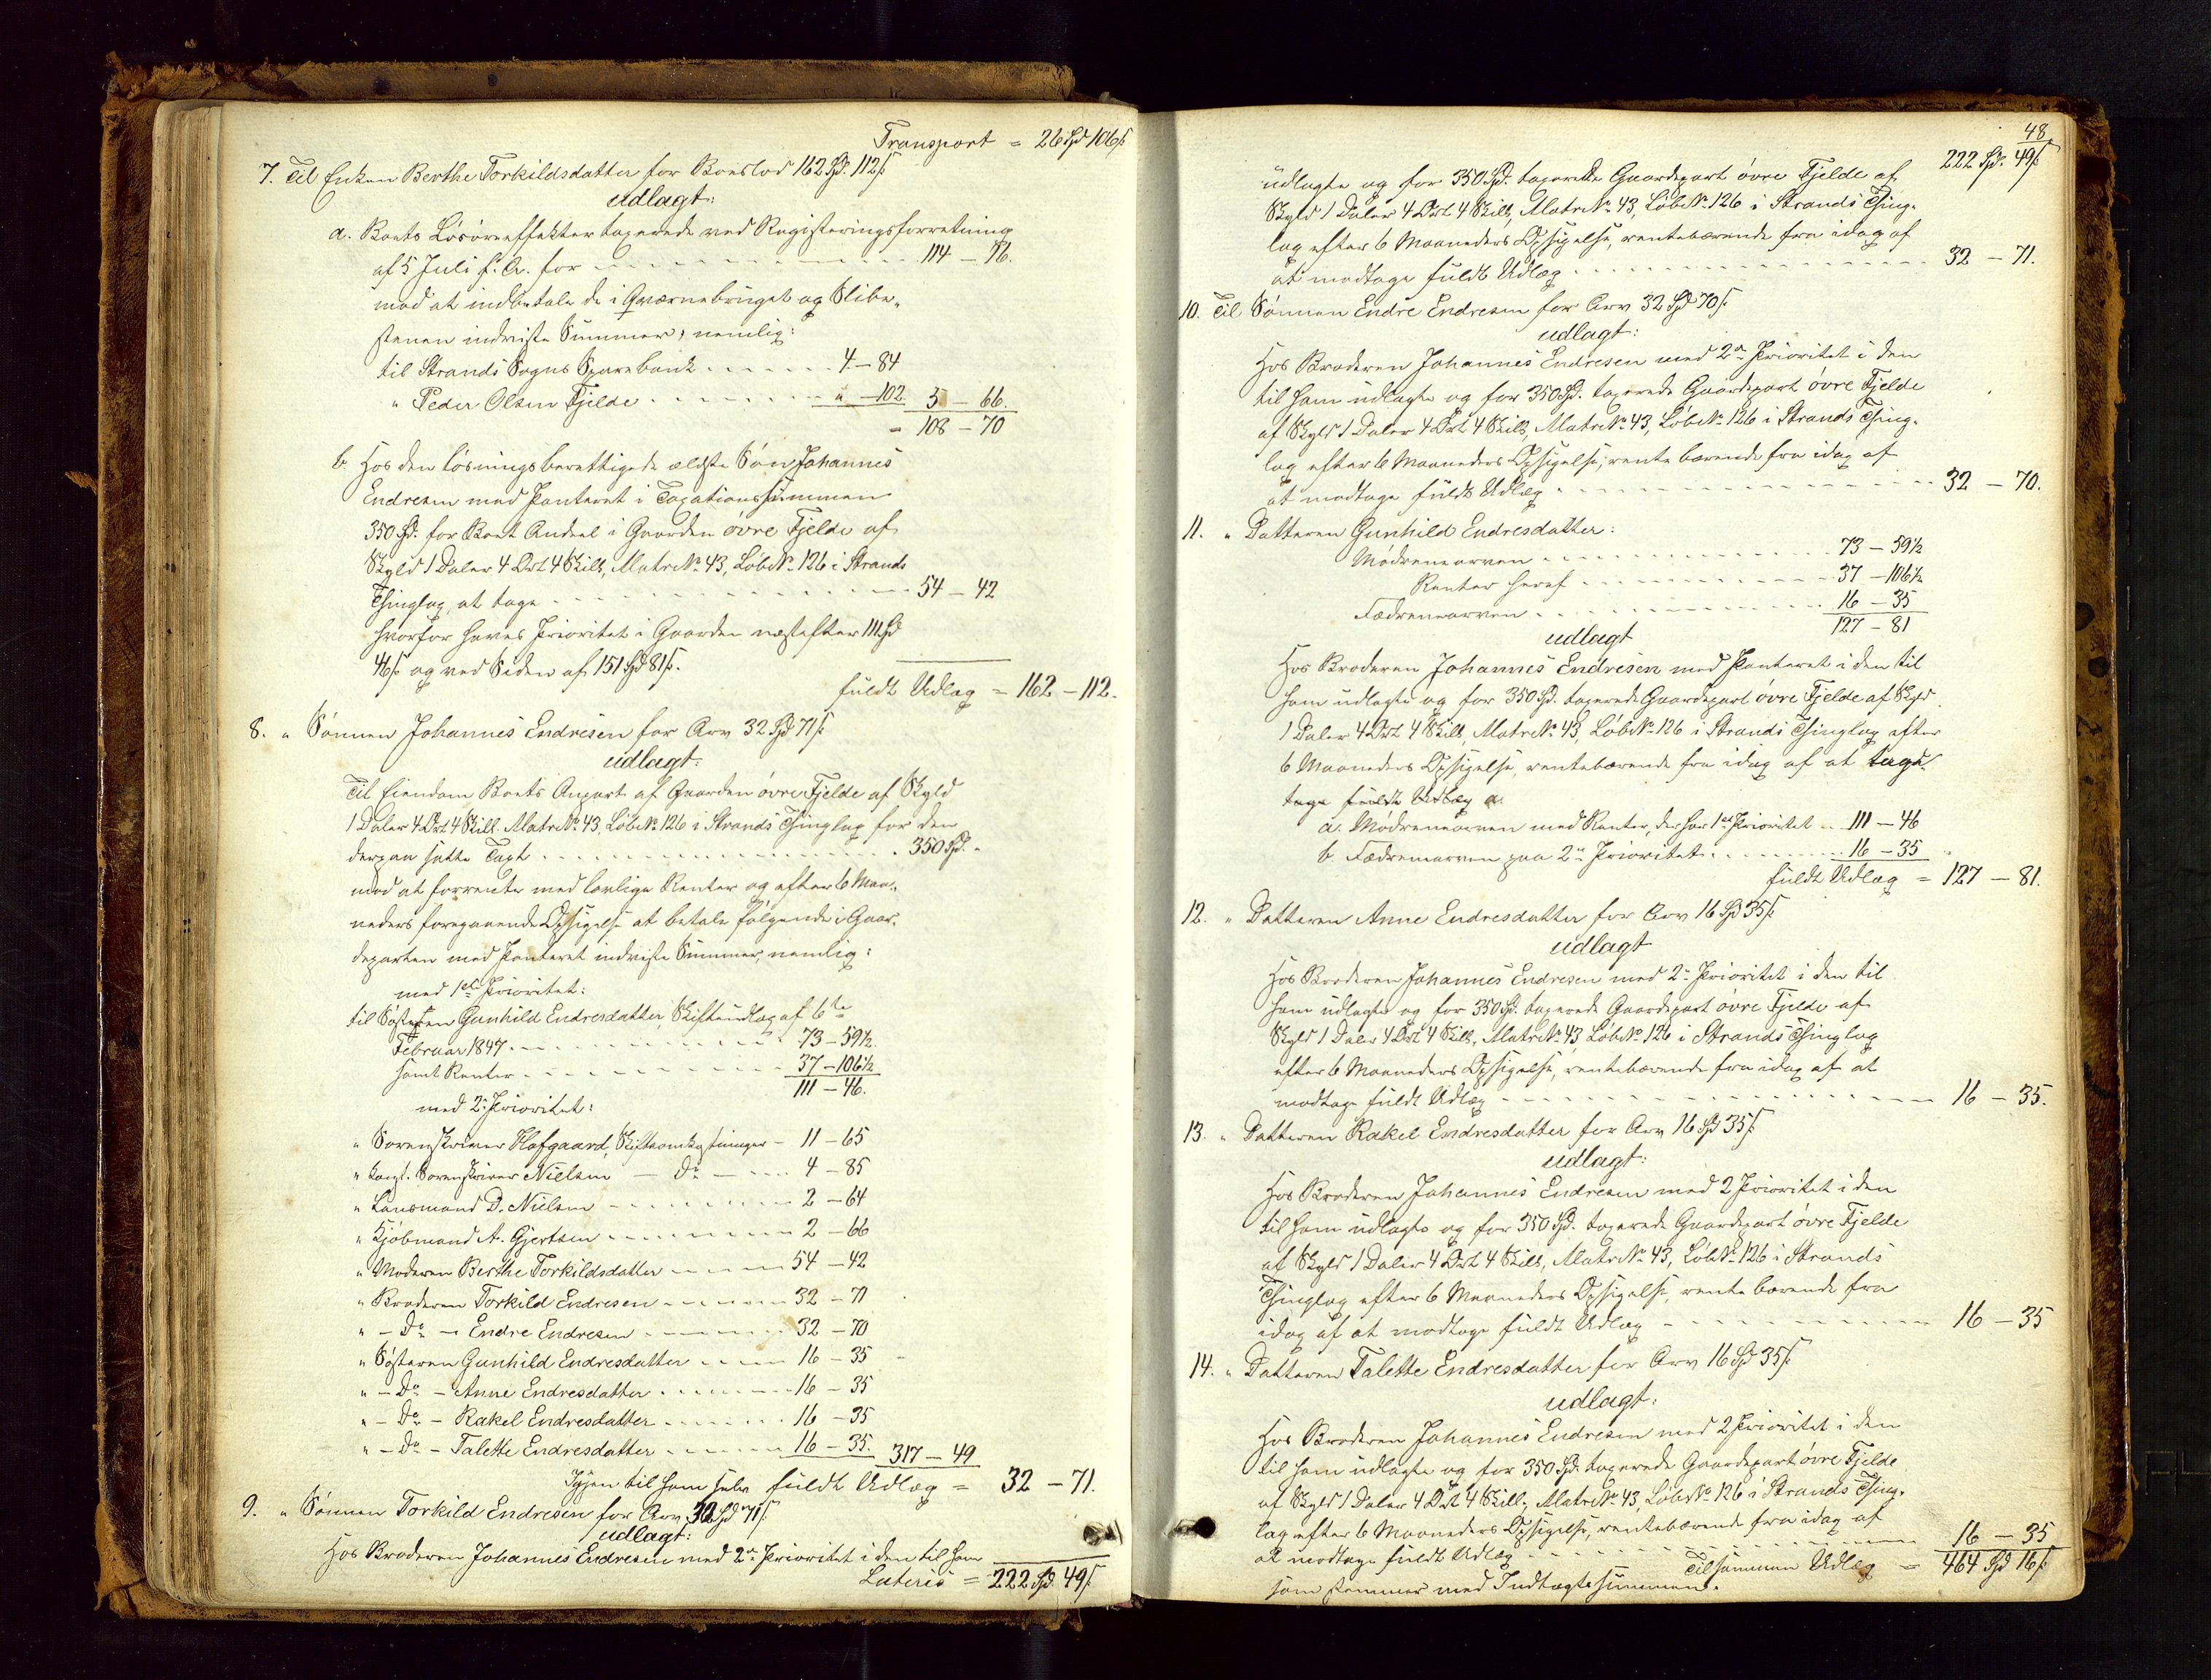 Transport = 26 Spd 106 s.
7. Til Enken Berthe Torkildsdatter for Boeslod 162 Spd. 112 s
udlagt:
a. Boets Løsøreeffekter taxerede ved Registreringsforretning
af 5 Juli f. A. for - - - 114 - 16.
mod at indbetale de i Qværnebruget og Slibe-
stenen indviste Summer, nemlig:
til Strands Sogns Sparebank - - - 4 - 84
" Peder Olsen Fjelde - - - " - 102. 5 - 66.
= 108 - 70
b. Hos den løsningsberettigede ældste Søn Johannes
Endresen med Panteret i Taxationssummen
350 Spd. for Boet Andeel i Gaarden øvre Fjelde af
Skyld 1 Daler 4 Ort 4 Skill, Matr. No 43, Løb. No 126 i Strands
Thinglag, at tage - - - 54 - 42
hvorfor haves Prioritet i Gaarden næstefter 111 Spd
46 s og ved Siden af 151 Spd 81 s.
fuldt Udlæg = 162 - 112.
8. " Sønnen Johannes Endresen for Arv 32 Spd 71 s
udlagt:
Til Eiendom Boets Anpart af Gaarden øvre Fjelde af Skyld
1 Daler 4 Ort 4 Skill. Matr. No 43, Løb. No 126 i Strands Thinglag for den
derpaa satte Taxt - - - 350 Spd. "
mod at forrente med lovlige Renter og efter 6 Maa-
neders foregaaende Opsigelse at betale følgende i Gaar-
departen med Panteret indviste Summer, nemlig:
med 1ste Prioritet:
til Søsteren Gunhild Endresdatter, Skifteudlæg af 6te
Februar 1847 - - - 73 - 59 1/2
samt Renter - - - 37 - 106 1/2
111 - 46.
med 2. Prioritet:
" Sorenskriver Hofgaard, Skifteomkostninger - 11 - 65
" const. Sorenskriver Nielsen - Do - - - 4 - 85
" Lensmand D. Nielsen - - - 2 - 64
" Kjøbmand A. Gjertsen - - - 2 - 66
" Moderen Berthe Torkildsdatter - - - 54 - 42
" Broderen Torkild Endresen - - - 32 - 71
" - Do - Endre Endresen - - - 32 - 70
" Søsteren Gunhild Endresdatter - - - 16 - 35
" - Do - Anne Endresdatter - - - 16 - 35
" - Do - Rakel Endresdatter - - - 16 - 35
" - Do - Talette Endresdatter - - - 16 - 35. 317 - 49
Igjen til ham selv fuldt Udlæg = 32 - 71.
9. " Sønnen Torkild Endresen for Arv 32 Spd 71 s
udlagt:
Hos Broderen Johannes Endresen med 2den Prioritet i den til ham
Lateris = 222 Spd 49 s.
48
222 Spd. 49 s.
udlagte og for 350 Spd. taxerede Gaardepart øvre Fjelde af
Skyld 1 Daler 4 Ort 4 Skill, Matr. No 43, Løb. No 126 i Strands Thing-
lag efter 6 Maaneders Opsigelse, rentebærende fra idag af
at modtage fuldt Udlæg - - - 32 - 71.
10. Til Sønnen Endre Endresen for Arv 32 Spd 70 s.
udlagt:
Hos Broderen Johannes Endresen med 2den Prioritet i den
til ham udlagte og for 350 Spd. taxerede Gaardepart øvre Fjelde
af Skyld 1 Daler 4 Ort 4 Skill, Matr. No 43, Løb. No 126 i Strands Thing-
lag efter 6 Maaneders Opsigelse, rentebærende fra idag af
at modtage fuldt Udlæg - - - 32 - 70.
11. " Datteren Gunhild Endresdatter:
Mødrenearven - - - 73 - 59 1/2
Renter heraf - - - 37 - 106 1/2
Fædrenearven - - - 16 - 35
127 - 81
udlagt
Hos Broderen Johannes Endresen med Panteret i den til
ham udlagte og for 350 Spd. taxerede Gaardepart øvre Fjelde af Skyld
1 Daler 4 Ort 4 Skill, Matr. No 43, Løb. No 126 i Strands Thinglag efter
6 Maaneders Opsigelse, rentebærende fra idag af at
tage fuldt Udlæg
a. Mødrenearven med Renter, der har 1ste Prioritet - 111 - 46
b. Fædrenearven paa 2den Prioritet - - - 16 - 35
fuldt Udlæg = 127 - 81.
12. " Datteren Anne Endresdatter for Arv 16 Spd 35 s.
udlagt
Hos Broderen Johannes Endresen med 2. Prioritet i den til
ham udlagte og for 350 Spd. taxerede Gaardepart øvre Fjelde af
Skyld 1 Daler 4 Ort 4 Skill, Matr. No 43, Løb. No 126 i Strands Thinglag
efter 6 Maaneders Opsigelse, rentebærende fra idag af at
modtage fuldt Udlæg - - - 16 - 35.
13. " Datteren Rakel Endresdatter for Arv 16 Spd 35 s.
udlagt:
Hos Broderen Johannes Endresen med 2 Prioritet i den
til ham udlagte og for 350 Spd. taxerede Gaardepart øvre Fjelde
af Skyld 1 Daler 4 Ort 4 Skill, Matr. No 43, Løb. No 126 i Strands
Thinglag efter 6 Maaneders Opsigelse, rentebærende fra
idag af at modtage fuldt Udlæg - - - 16 - 35
14. " Datteren Talette Endresdatter for Arv 16 Spd 35 s.
udlagt:
Hos Broderen Johannes Endresen med 2 Prioritet i den
til ham udlagte og for 350 Spd. taxerede Gaardepart øvre Fjelde
af Skyld 1 Daler 4 Ort 4 Skill, Matr. No 43, Løb. No 126 i Strands Thing-
lag efter 6 Maaneders Opsigelse, rentebærende fra idag af
at modtage fuldt Udlæg - - - 16 - 35
Tilsammen Udlæg = 464 Spd 16 s.
som stemmer med Indtægtssummen.